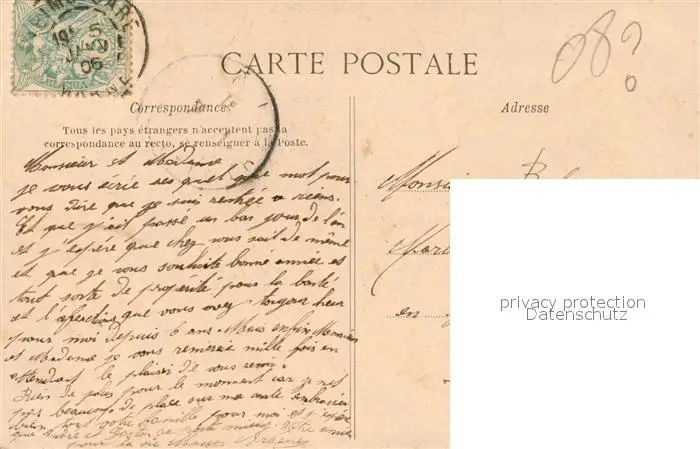 REIMS GARE
19
5
JANV
06
MARNE
CARTE POSTALE
08?
Correspondance
Tous les pays étrangers n'acceptent pas la
correspondance au recto, se renseigner à la Poste.
Adresse
Monsieur et Madame
je vous écrie ses quelque mot pour
vous dire que je suis rentré a reims.
Et que j'ait passé un bon jour de l'an
et j'espéré que chez vous soit de même
et que je vous souhaite bonne année et
tout sorte de propérité pour la bonté
et l'afection que vous avez toujour heu
pour moi depuis 6 ans. Mais enfin Monsieur
et Madame je vous remerci mille fois en
attendant le plaisir de vous revoir.
Rien de plus pour le moment car je n'ait
pas beaucoup de place sur ma carte embrassé
bien tout votre famille pour moi et j'espére
que André Gaston se porte mieux votre amie
pour la vie
Monsi
Mare
en
privacy protection
Datenschutz